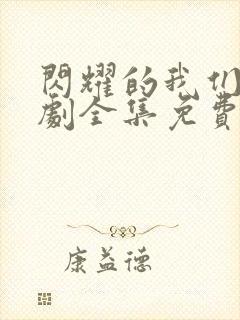 閃耀的我们
劇全集免費
康益德